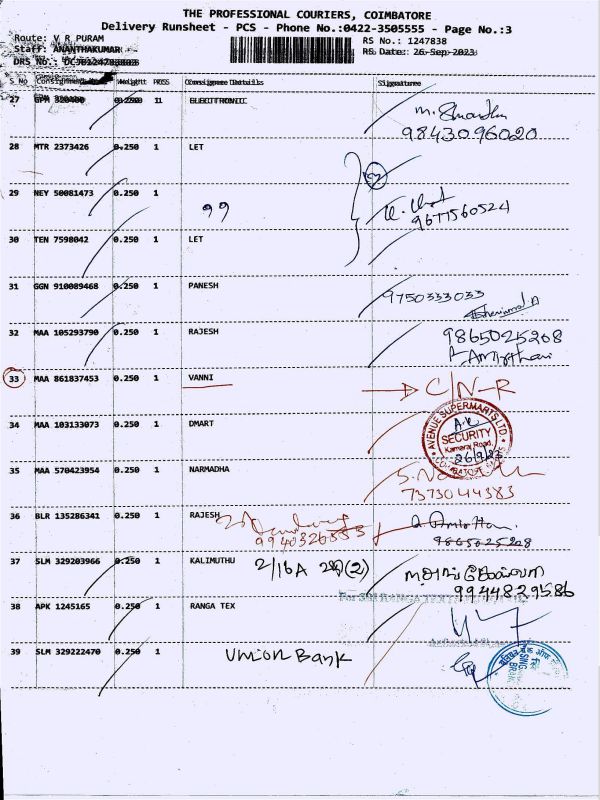 THE PROFESSIONAL COURIERS, COIMBATORE
Delivery Runsheet - PCS - Phone No.:0422-3505555 - Page No.:3
Route: V R PURAM
RS No.: 1247838
Staff: ANANTHAKUMAR --
RS Date: 26-Sep-2023
DRS No.:
S No Weight PCS Consignee Details Signature
27 11 ELECTRONIC
9843096020
28 MTR 2373426 0.250 1 LET
29 NEY 50081473 0.250 1 99
9677560524
30 TEN 7598042 0.250 1 LET
31 GGN 910089468 0.250 1 PANESH 9750333033
32 MAA 105293790 0.250 1 RAJESH 9865025208
33 MAA 861837453 0.250 1 VANNI C/N-R
34 MAA 103133073 0.250 1 DMART
AVENUE SUPERMARTS LTD.
SECURITY
Kamaraj Road,
26/9/23
35 MAA 570423954 0.250 1 NARMADHA
7373044383
36 BLR 135286341 0.250 1 RAJESH
9940326553 9865025208
37 SLM 329203966 0.250 1 KALIMUTHU 2/16A
9944829586
38 APK 1245165 0.250 1 RANGA TEX
39 SLM 329222470 0.250 1 Union Bank